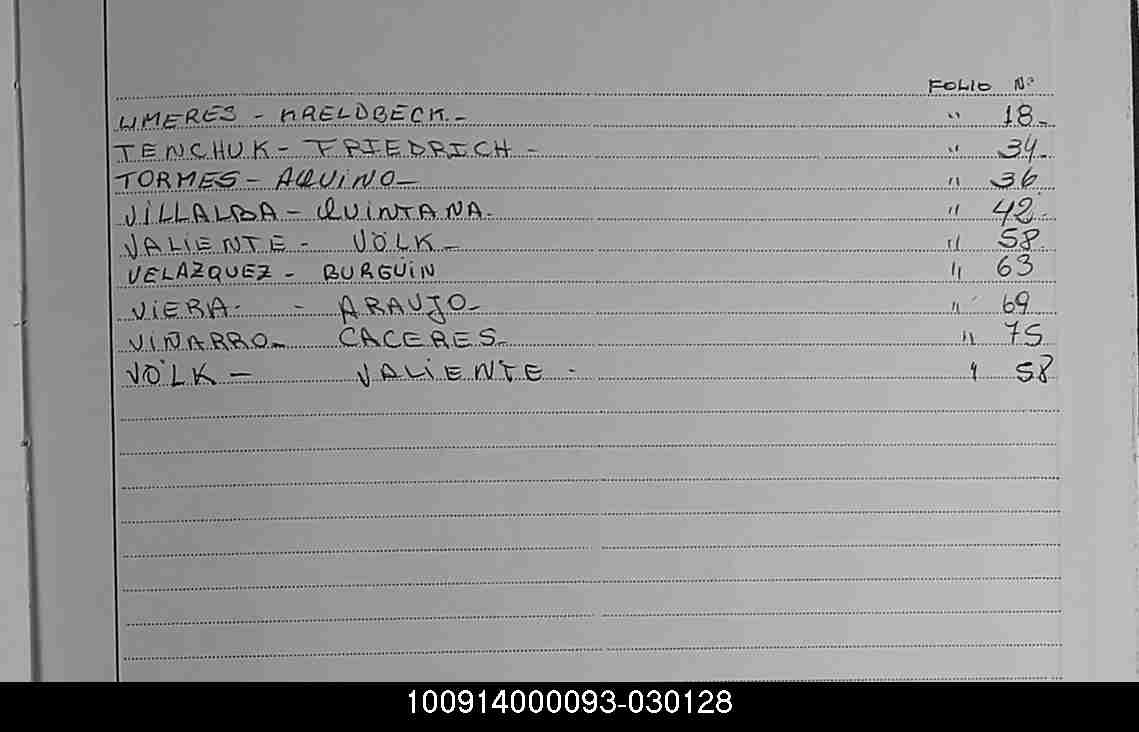 FOLIO Nº
UMERES - KRELDBECK - " 18 -
TENCHUK - FRIEDRICH - " 34 -
TORMES - AQUINO - " 36
VILLALBA - QUINTANA. " 42.
VALIENTE - VÖLK - " 58.
VELAZQUEZ - BURGUIN " 63
VIERA - ARAUJO - " 69
VIÑARRO - CACERES - " 75
VÖLK - VALIENTE - " 58
100914000093-030128